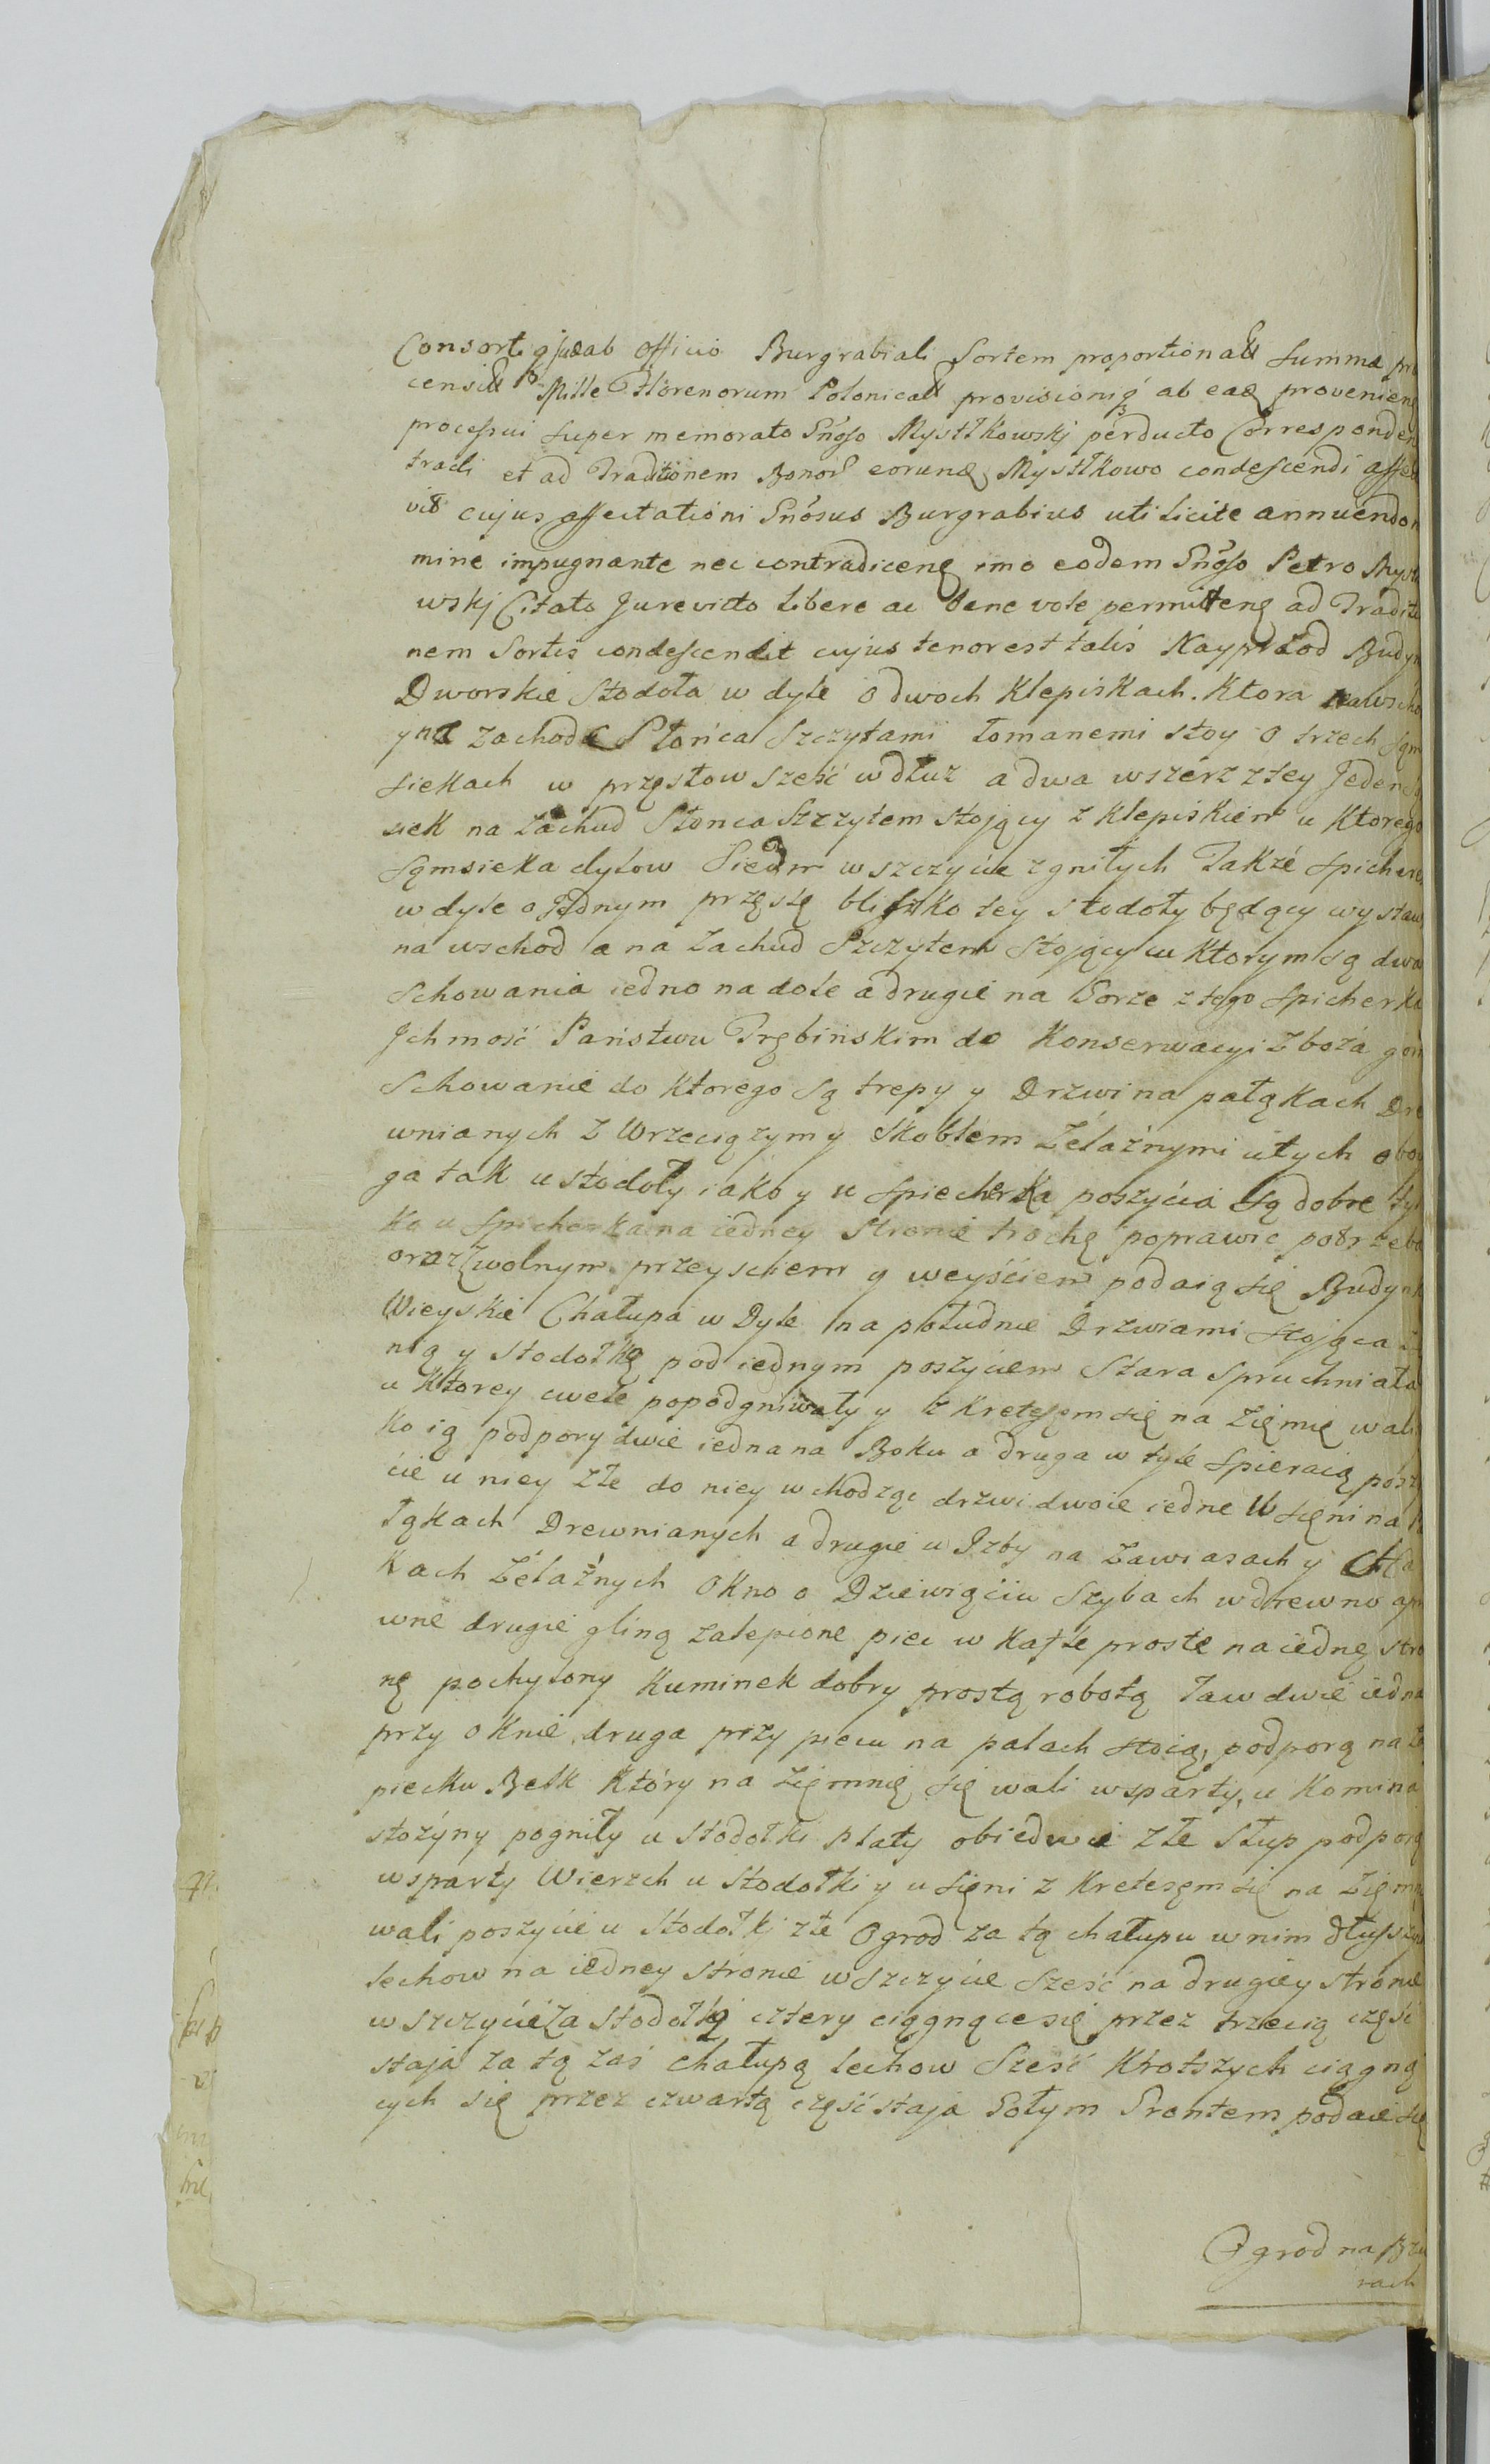 Consorti ejus ab officio Burgrabiali Sortem proportionalem Summæ pre
censitæ Mille Florenorum Polonicalium provisioniq ab eadem provenien
processui super memorato Gñoso Mystkowskj perducto Corresponden
tradi et ad Traditionem Bonor eorundem Mystkowo condescendi affec
vit cujus affectationi Gñosus Burgrabius uti licite annuendo
mine impugnante nec contradicente imo eodem Gñoso Petro Mystko
wskj Citato Jurevicto libere ac bene vole permittente ad Traditio
nem Sortis condescendit cujus tenor est talis Nayprzod Budyn
Dworskie Stodoła w dyle o dwoch Klepiskach. Ktora na wscho
y na zachod Słońca Szczytami łomanemi stoy o trzech Sąm
siekach w przęsłow sześć w dłuz a dwa wszérz z tey Jeden są
siek na Zachud Słonca Szczytem stojący z Klepiskiem u Ktorego
Sąmsieka dylow Siedm w szczycie zgniłych Także Spicherz
w dyle o Jednym przęsłę blisko tey stodoły będący wystaw
na wschod a na Zachud Szczytem Stojący w Ktorym są dwa
Schowania iedno na dole a drugie na Gorze z tego Spicherka
Jchmość Państwu Trębińskim do Konserwacyi Zboża gor
Schowanie do Ktorego są trepy y Drzwi na pałąkach Dre
wnianych z Wrzeciązym y Skoblem Żelaźnymi u tych oboy
ga tak u stodoły iako y u Spiecherka poszycia są dobre tyl
ko u Spicherka na iedney Stronie trochę poprawic potrzeba
oraz z wolnym przeysciem y weyściem podaią się Budynki
Wieyskie Chałupa w Dyle na południe Drzwiami stojąca z
nią y stodołką pod iednym poszyciem Stara Spruchniała
u Ktorey cwele popodgniwały y z Kretesem się na Zięmię wali
ko ią podpory dwie iedna na Boku a druga w tyle Spieraią poszy
cie u niey złe do niey wchodząc drzwi dwoie iedne w sięni na Pa
łąkach Drewnianych a drugie u Izby na Zawiasach y
kach Żelaźnych Okno o Dziewiąciu Szybach w drewno opra
wne drugie gliną zalepione piec w Kafle proste na iednę stro
nę pochylony Kuminek dobry prostą robotą Ław dwie iedna
przy oknie druga przy piecu na palach stoią, podporą na Za
piecku Belk Który na Zięmnię się wali wsparty, u Komina
stożyny pogniły u stodołki płaty obiedwie złe Słup podporą
wsparty Wierzch u Stodołki y u sięni z Kretesęm się na Zięmię
wali poszycie u Stodołkj złe Ogrod za tą chałupu w nim dłuszych
lechow na iedney stronie w szczycie sześć na drugiey stronie
w szczycie za stodołkj cztery ciągnące się przez trzecią część
staja za tą zaś chałupą lechow Sześć Krotszych ciągną
cych się przez czwartą część staja Gołym Grontem podaie się
Ogrod na Bzu
rach